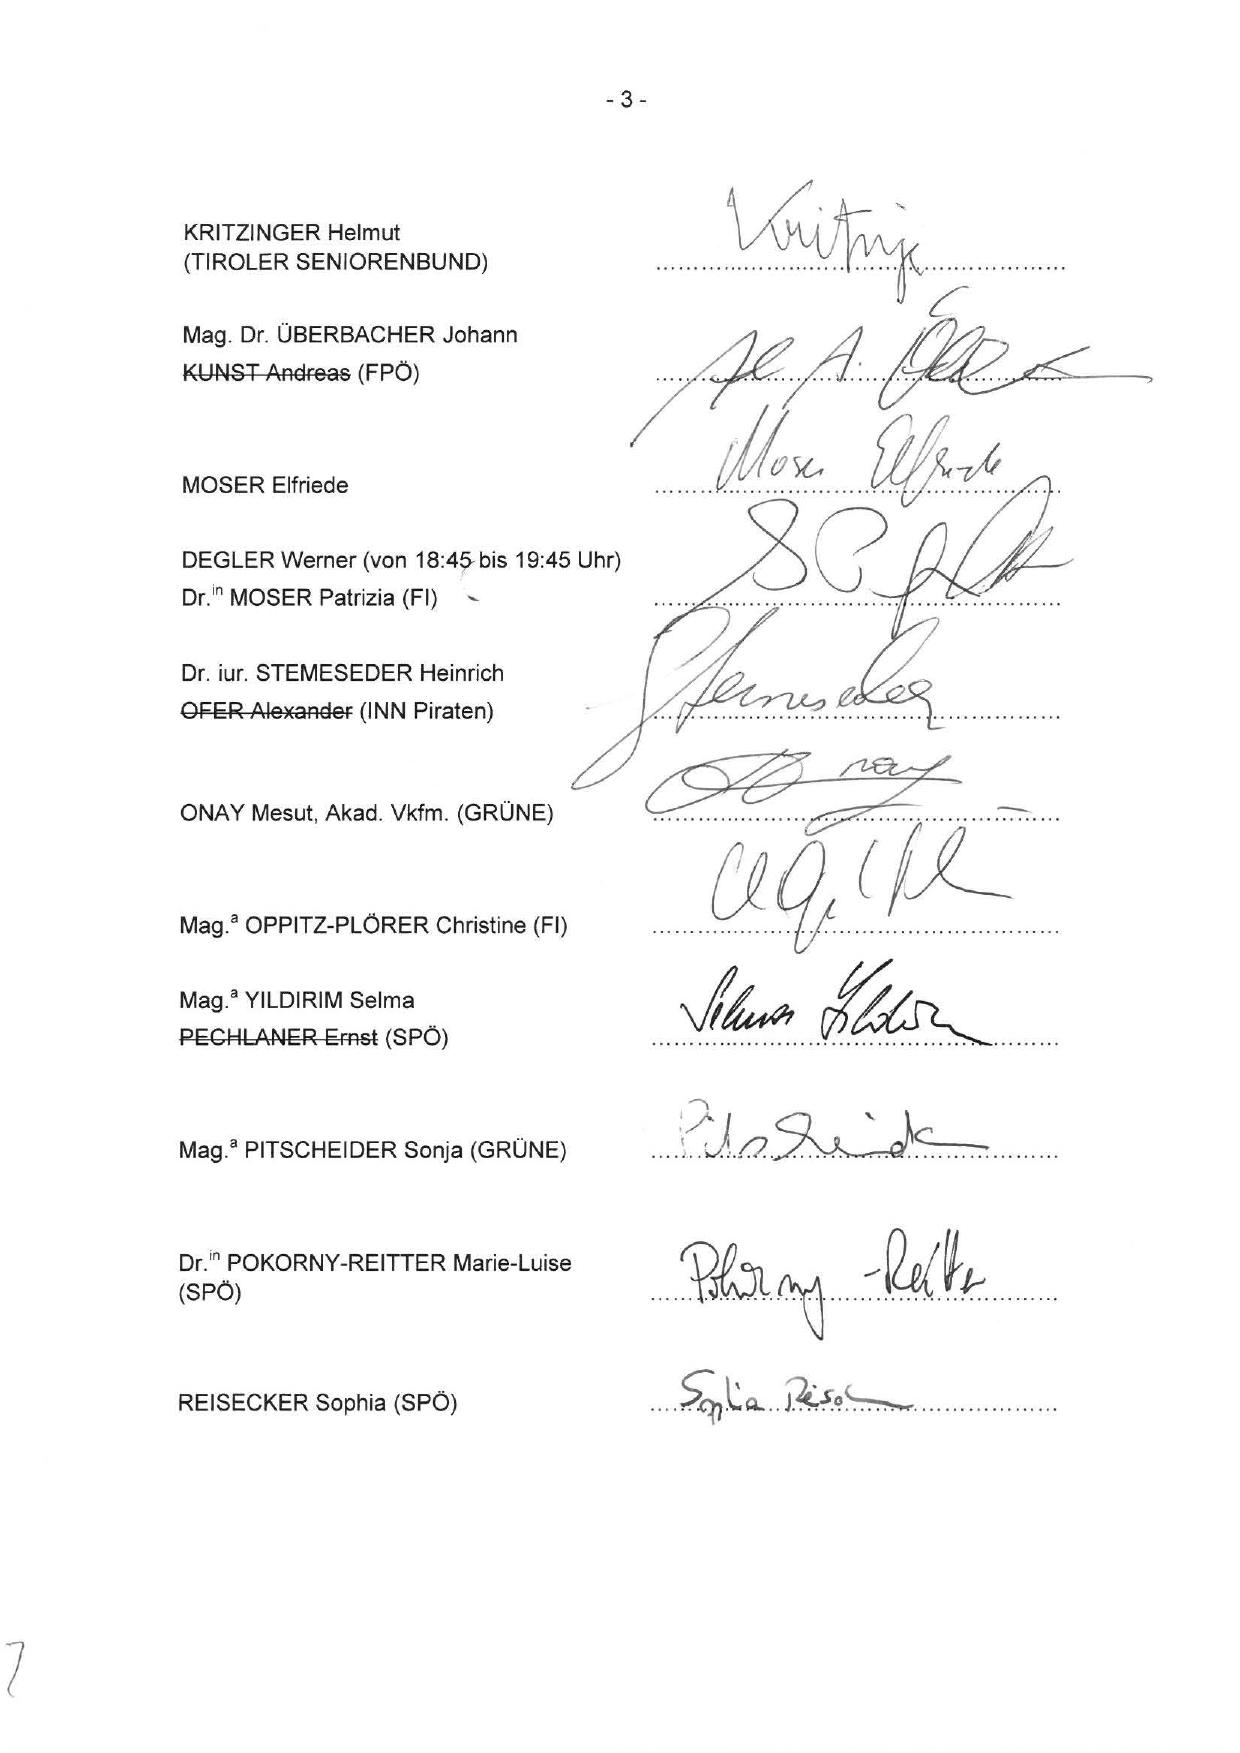 - 3 -
KRITZINGER Helmut
(TIROLER SENIORENBUND)
Kritzinger
Mag. Dr. ÜBERBACHER Johann
KUNST Andreas (FPÖ)
MOSER Elfriede
Moser Elfriede
DEGLER Werner (von 18:45 bis 19:45 Uhr)
Dr.in MOSER Patrizia (FI)
Dr. iur. STEMESEDER Heinrich
OFER Alexander (INN Piraten)
Stemeseder
ONAY Mesut, Akad. Vkfm. (GRÜNE)
Onay
Mag.a OPPITZ-PLÖRER Christine (FI)
Mag.a YILDIRIM Selma
PECHLANER Ernst (SPÖ)
Selma Yildirim
Mag.a PITSCHEIDER Sonja (GRÜNE)
Pitscheider
Dr.in POKORNY-REITTER Marie-Luise
(SPÖ)
Pokorny-Reitter
REISECKER Sophia (SPÖ)
Sophia